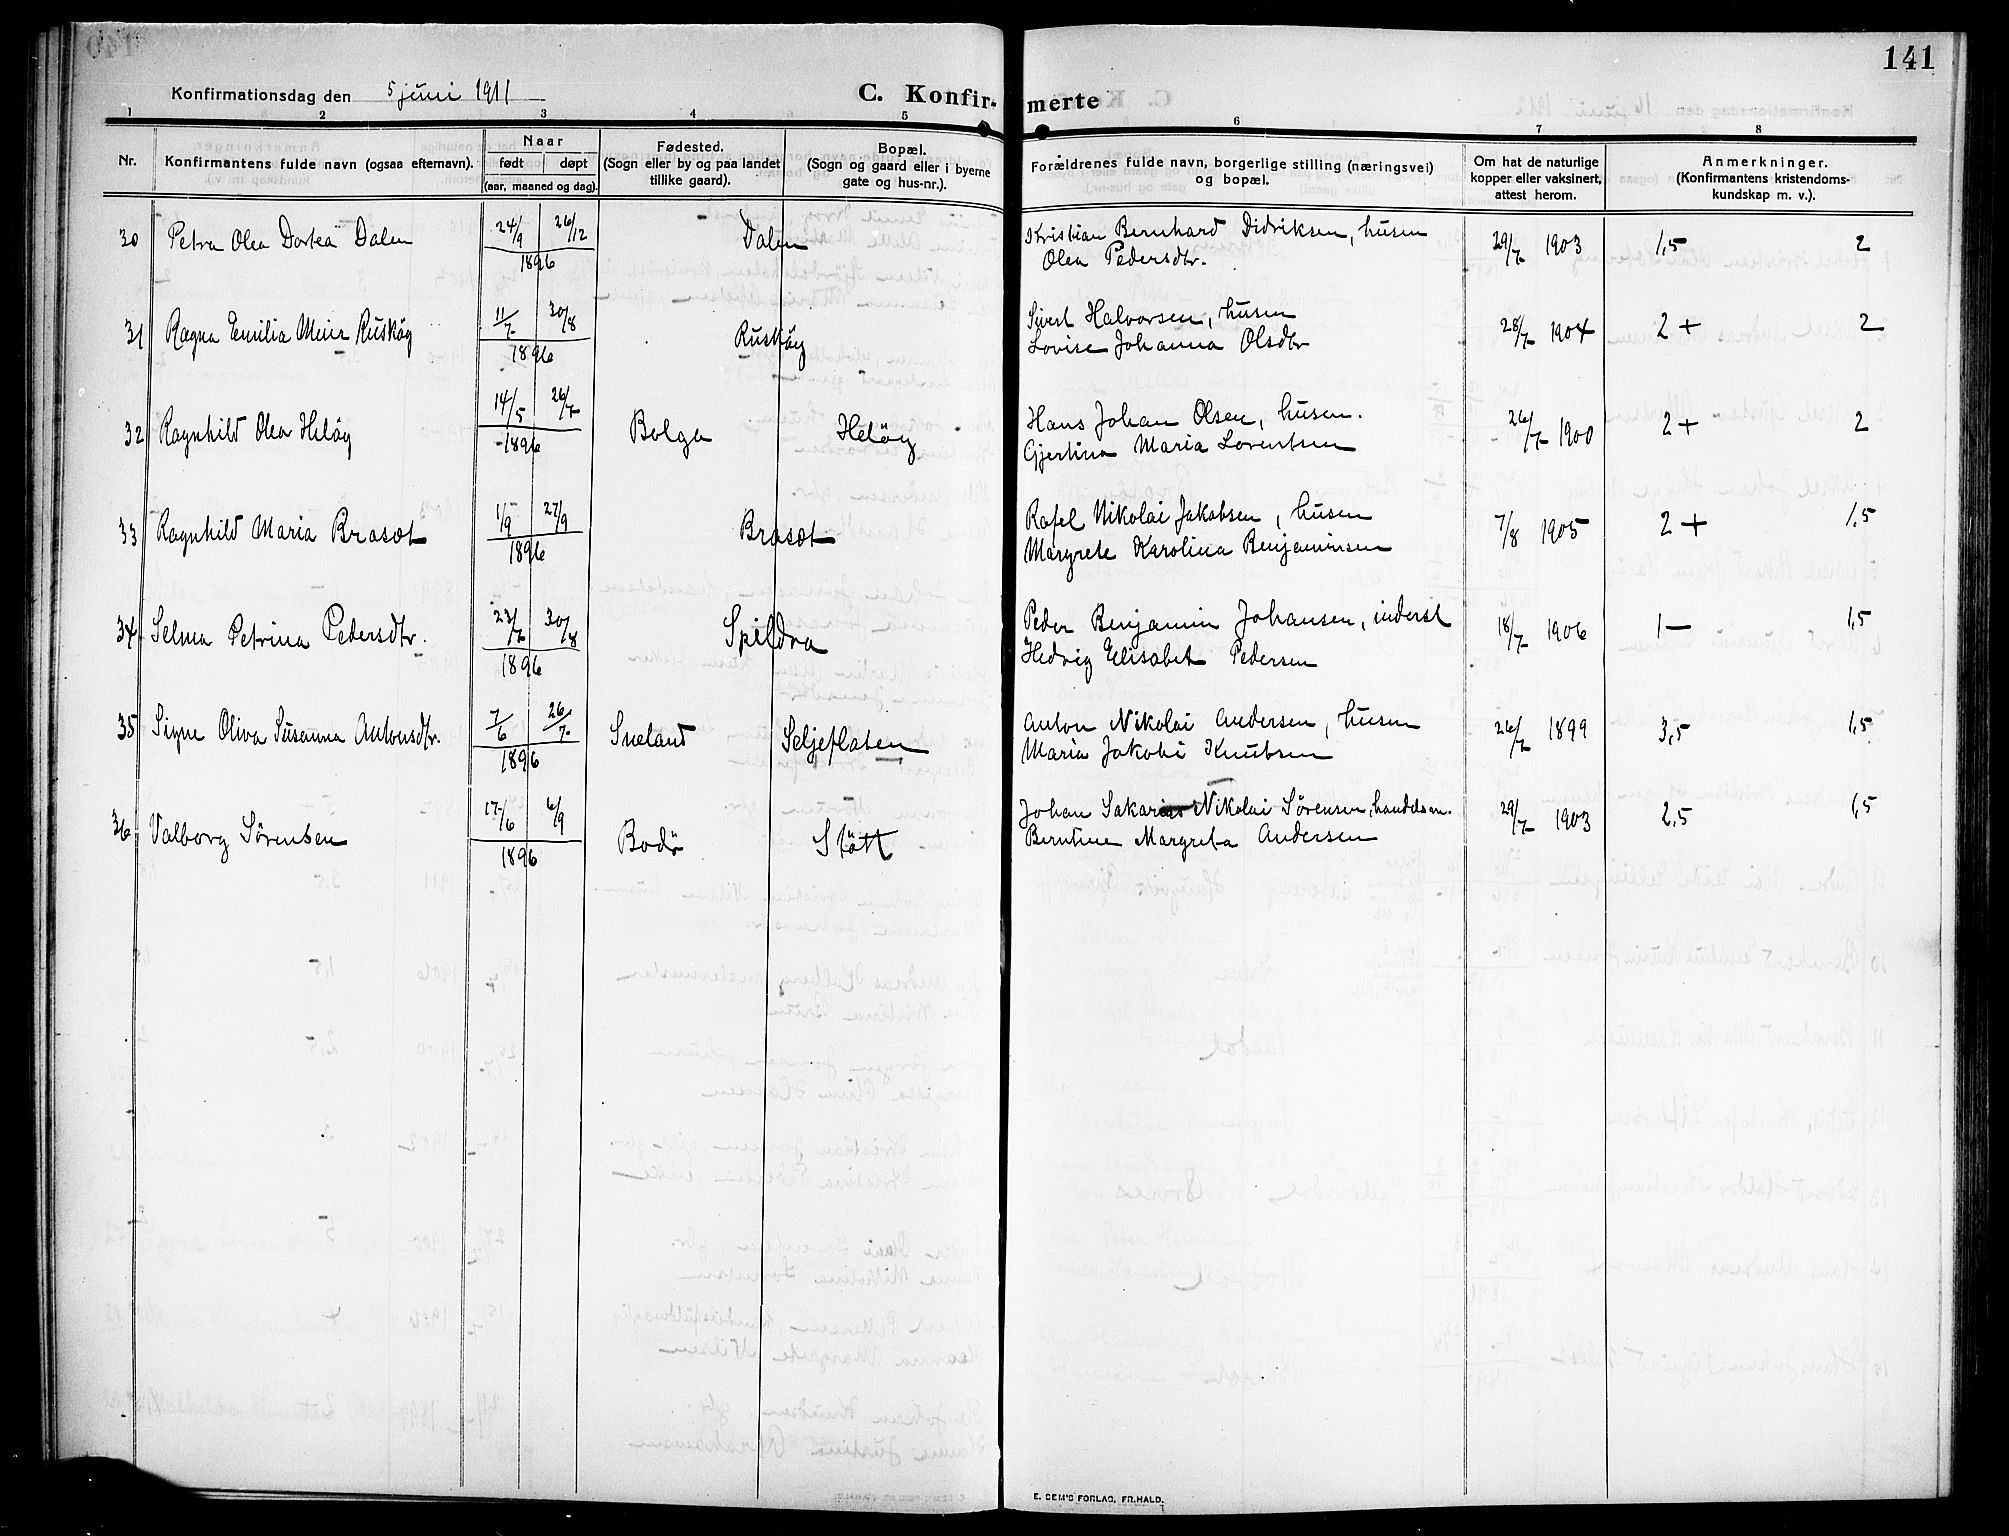 141
Konfirmationsdag den 5 juni 1911
C. Konfirmerte
1 2 3 4 5 6 7 8
Nr.
Konfirmantens fulde navn (ogsaa efternavn).
Naar
født døpt
(aar, maaned og dag).
Fødested.
(Sogn eller by og paa landet
tillike gaard).
Bopæl.
(Sogn og gaard eller i byerne
gate og hus-nr.).
Forældrenes fulde navn, borgerlige stilling (næringsvei)
og bopæl.
Om hat de naturlige
kopper eller vaksinert,
attest herom.
Anmerkninger.
(Konfirmantens kristendoms-
kundskap m. v.).
30 Petra Olea Dortea Dalen 24/9 26/12 Dalen Kristian Bernhard Didriksen, husm 29/7 1903 1,5 2
1896 Olea Pedersdtr.
31 Ragna Emilia Meier Ruskøy 11/7 30/8 Ruskøy Sivert Halvorsen, husm 28/7 1904 2+ 2
1896 Lovise Johanna Olsdtr
32 Ragnhild Olea Heløy 14/5 26/7 Bolga Heløy Hans Johan Olsen, husm. 26/7 1900 2+ 2
1896 Gjertina Maria Lorentsen
33 Ragnhild Maria Brasæt 1/9 27/9 Brasæt Rafel Nikolai Jakobsen, husm 7/8 1905 2+ 1,5
1896 Margrete Karolina Benjaminsen
34 Selma Petrina Pedersdtr. 23/7 30/8 Spildra Peder Benjamin Johansen, inderst 18/7 1906 1— 1,5
1896 Hedvig Elisabet Pedersen
35 Signe Oliva Susanna Antonsdtr. 7/6 26/7 Sneland Seljeflaten Anton Nikolai Andersen, husm 26/7 1899 3,5 1,5
1896 Maria Jakobi Knutsen
36 Valborg Sørensen 17/6 6/9 Bodø Støtt Johan Sakarias Nikolai Sørensen, handelsm. 29/7 1903 2,5 1,5
1896 Berntine Margreta Andersen
E. SEM'S FORLAG, FR.HALD.